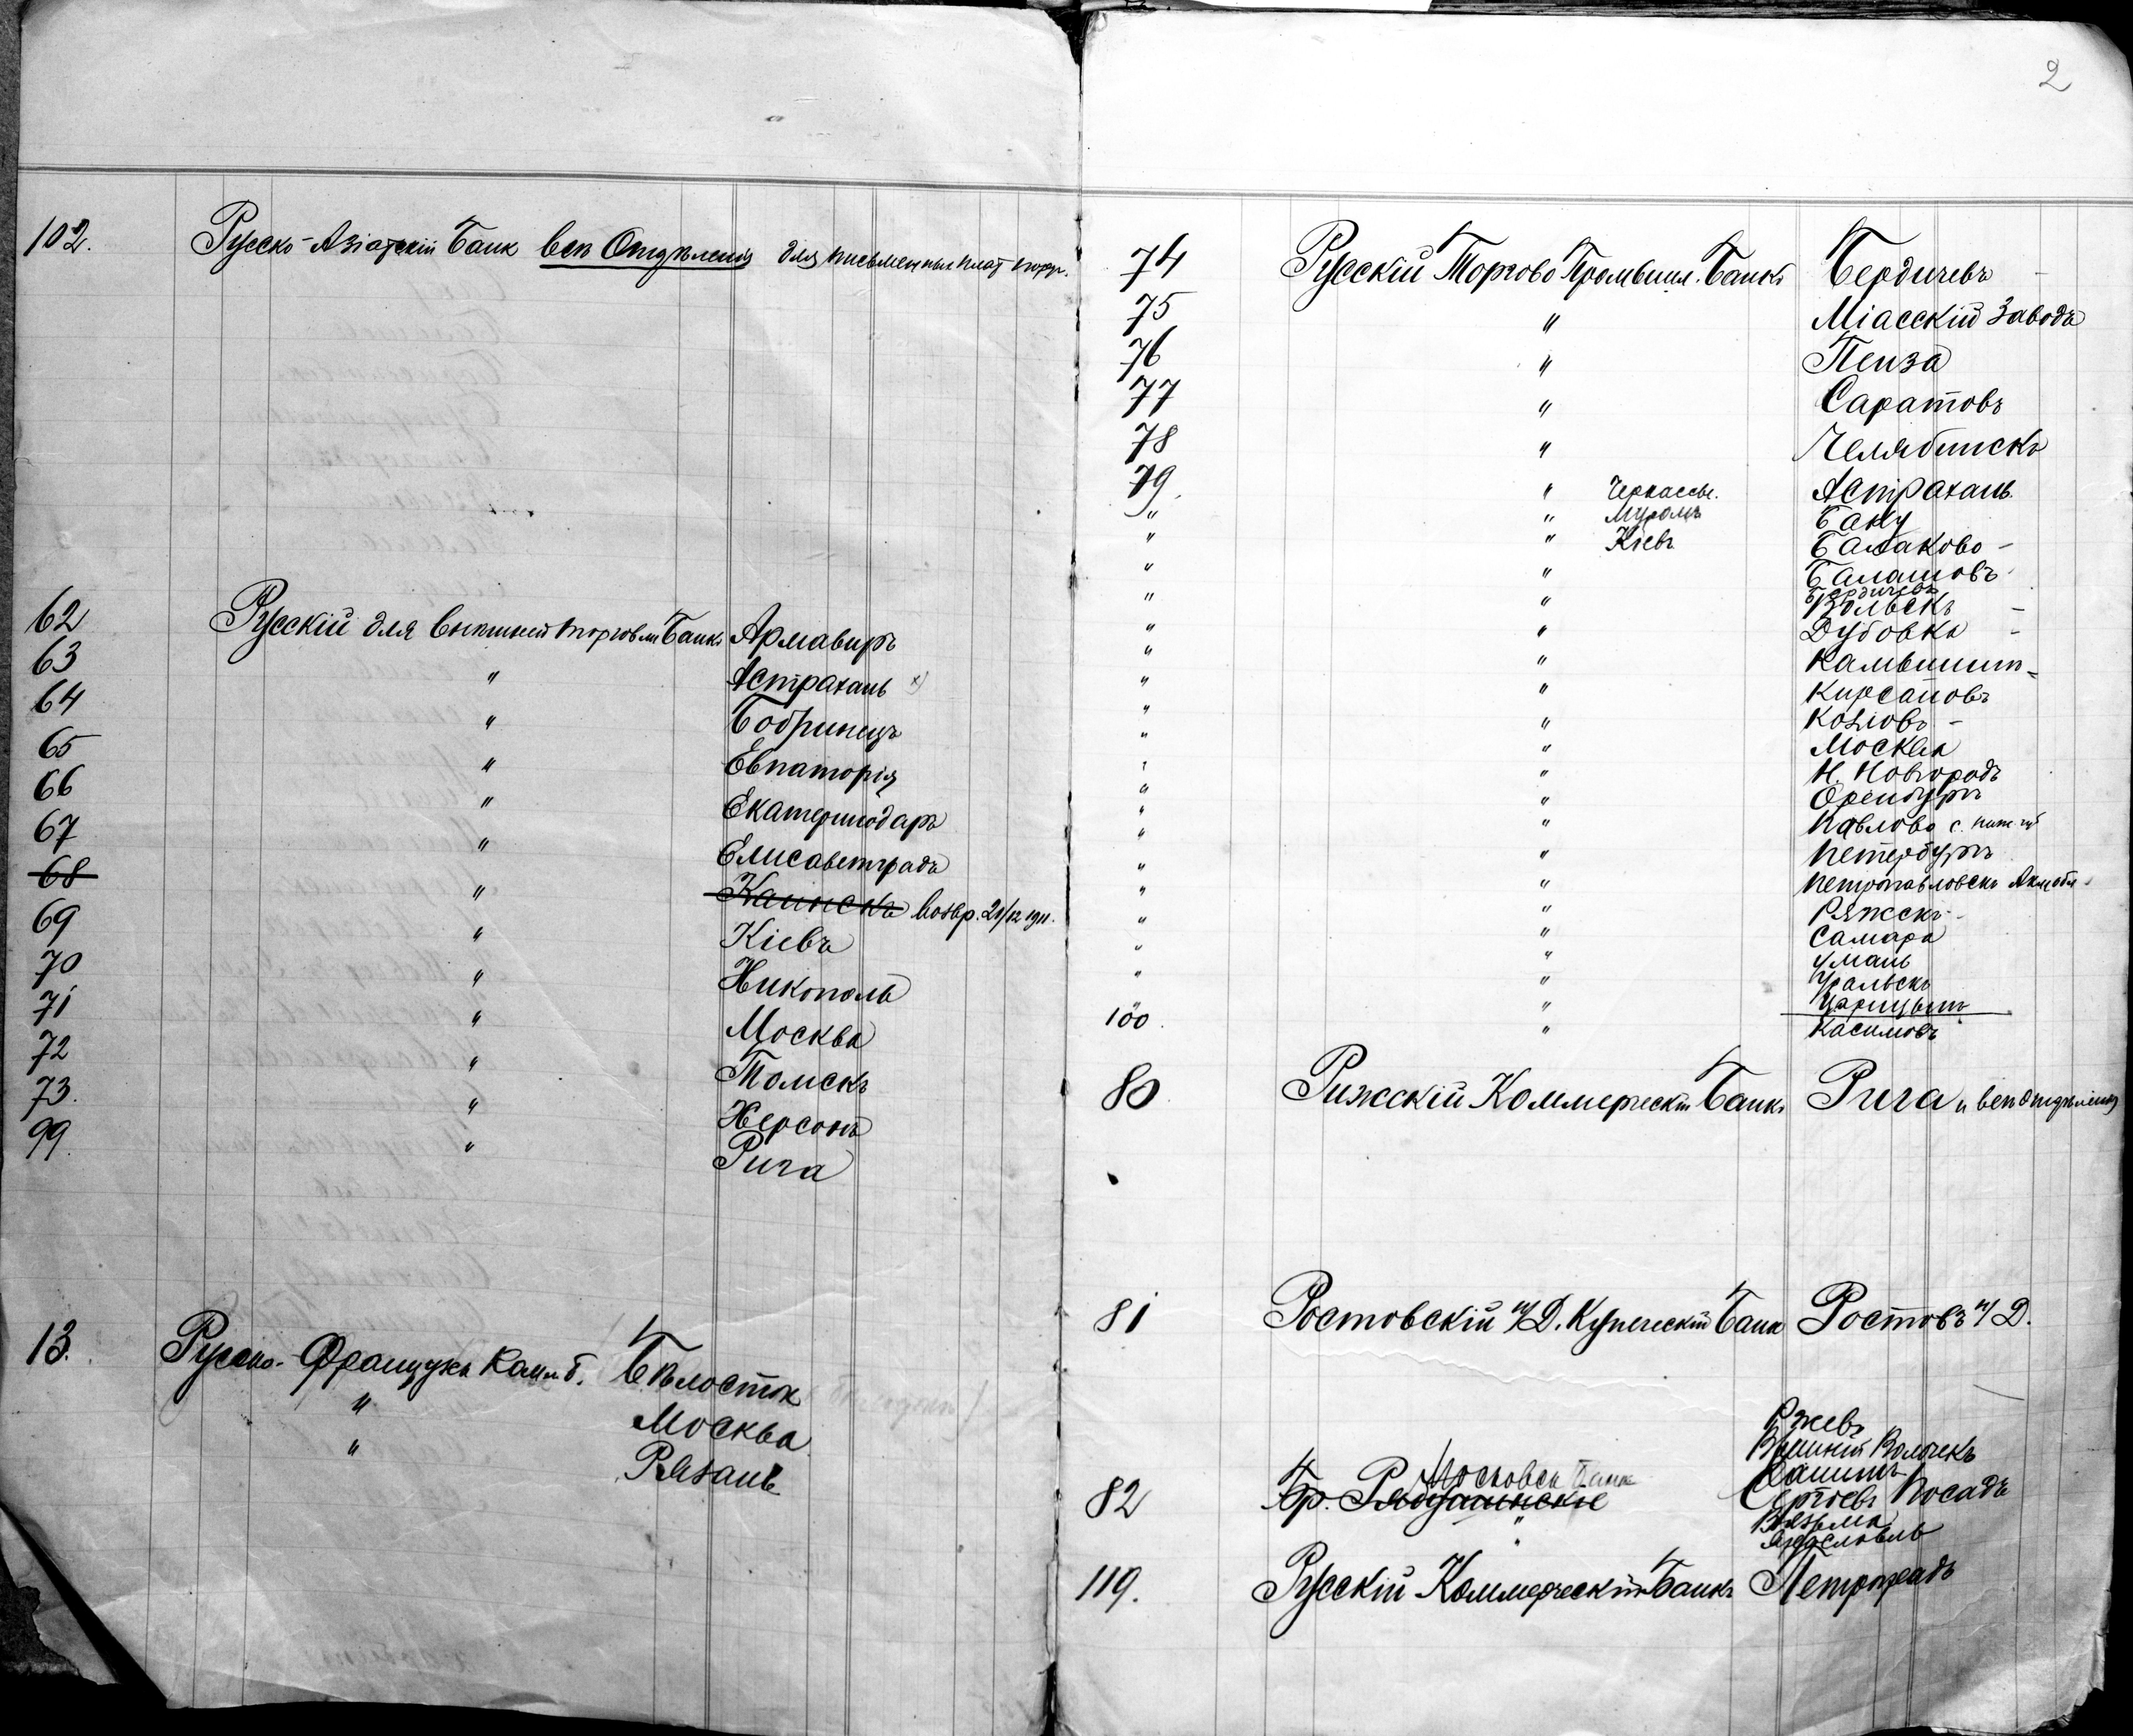 102. Русско-Азіатскій Банк всѣ Отдѣленія для письменных плат
62 Русскій для внѣшней торговли Банкъ Армавиръ
63 " Астрахань x)
64 " Бобринецъ
65 " Евпаторія
66 " Екатеринодаръ
67 " Елисаветградъ
68 " Каинскъ возвр. 21/12 1911.
69 " Кіевъ
70 " Никополь
71 " Москва
72 " Томскъ
73. " Херсонъ
99. " Рига
13. Русско-Французск Ком. б. Бѣлосток
" Москва
" Рязань
2
74 Русскій Торгово Промышл. Банкъ Бердичевъ
75 " Міасскій Заводъ
76 " Пенза
77 " Саратовъ
78 " Челябинскъ
79. " Черкассы. Астрахань
" " Муромъ Баку
" " Кіевъ Балаково
" " Балашовъ
Бердичевъ
" " Вольскъ
" " Дубовка
" " Камышинъ
" " Кирсановъ
" " Козловъ
" " Москва
" " Н. Новгородъ
" " Оренбургъ
" " Павлово с. Ниж. губ
" " Петербургъ
" " Петропавловскъ Акм. обл.
" " Ряжскъ
" " Самара
" " Умань
" " Уральскъ
" " Царицынъ
100. " Касимовъ
80 Рижскій Коммерческій Банкъ Рига и всѣ отдѣленія
81 Ростовскій н/Д. Купеческій Банк Ростовъ н/Д.
Ржевъ
Вышній Волочекъ
Московск Банк Кашинъ
82 Бр. Рябушинскіе Сергіевъ Посадъ
" Вязьма
Ярославль
119. Русскій Коммерческій Банкъ Петроградъ